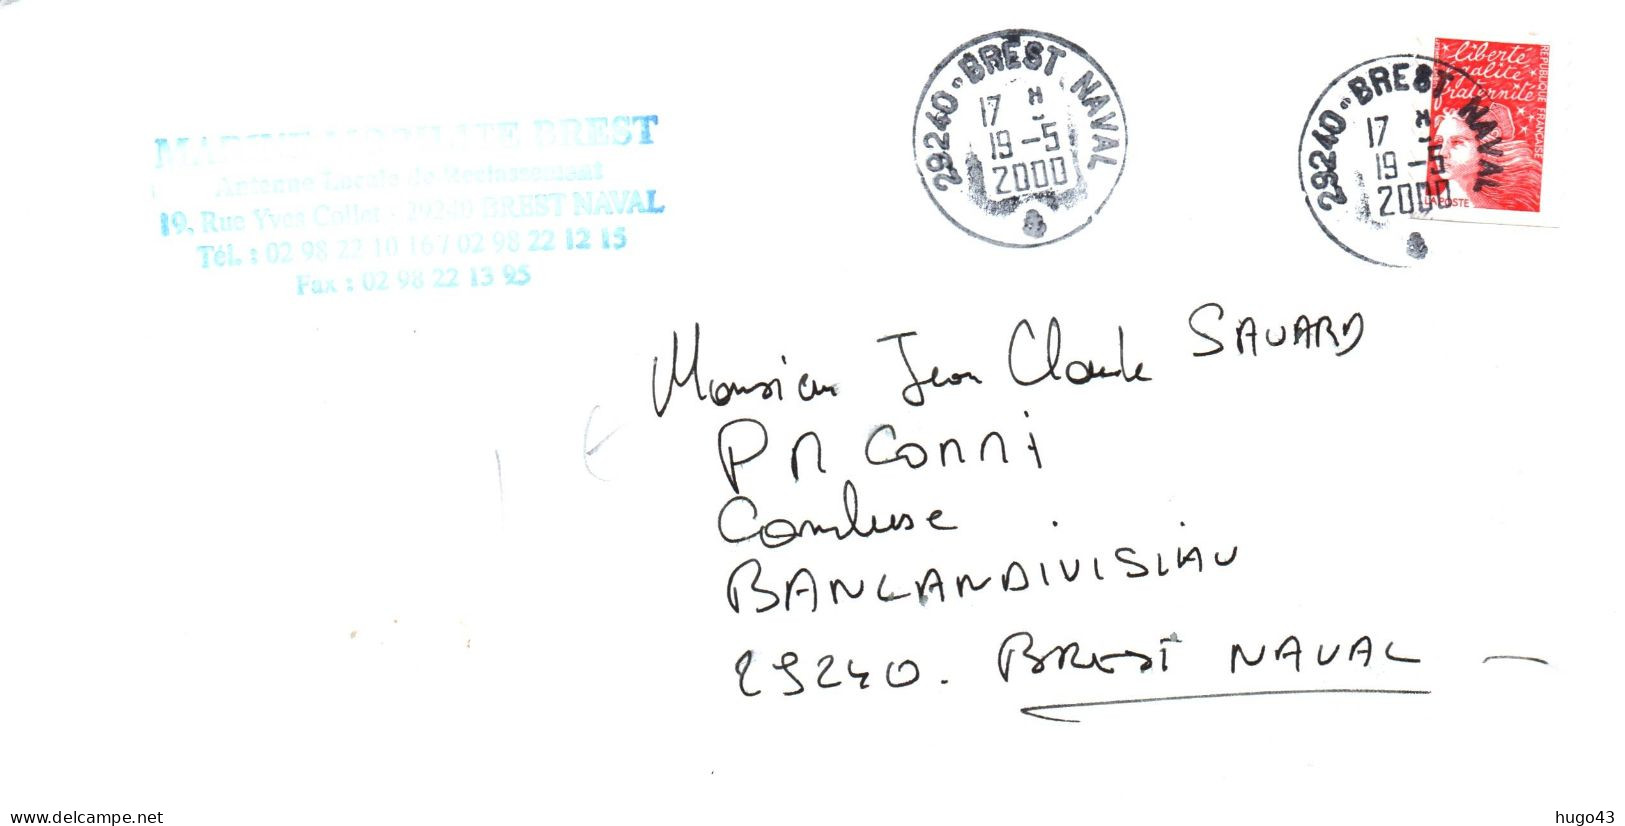 MARINE MOBILITE BREST
Antenne Locale de Reclassement
19, Rue Yves Collet - 29240 BREST NAVAL
Tél. : 02 98 22 10 16 / 02 98 22 12 15
Fax : 02 98 22 13 95
29240 - BREST NAVAL
17 H
19 -5
2000
29240 - BREST NAVAL
17 H
19 -5
2000
liberté
égalité
fraternité
REPUBLIQUE FRANÇAISE
LA POSTE
Monsieur Jean Claude SAVARD
PM
BAN LANDIVISIAU
29240. BREST NAVAL
www.delcampe.net
hugo43